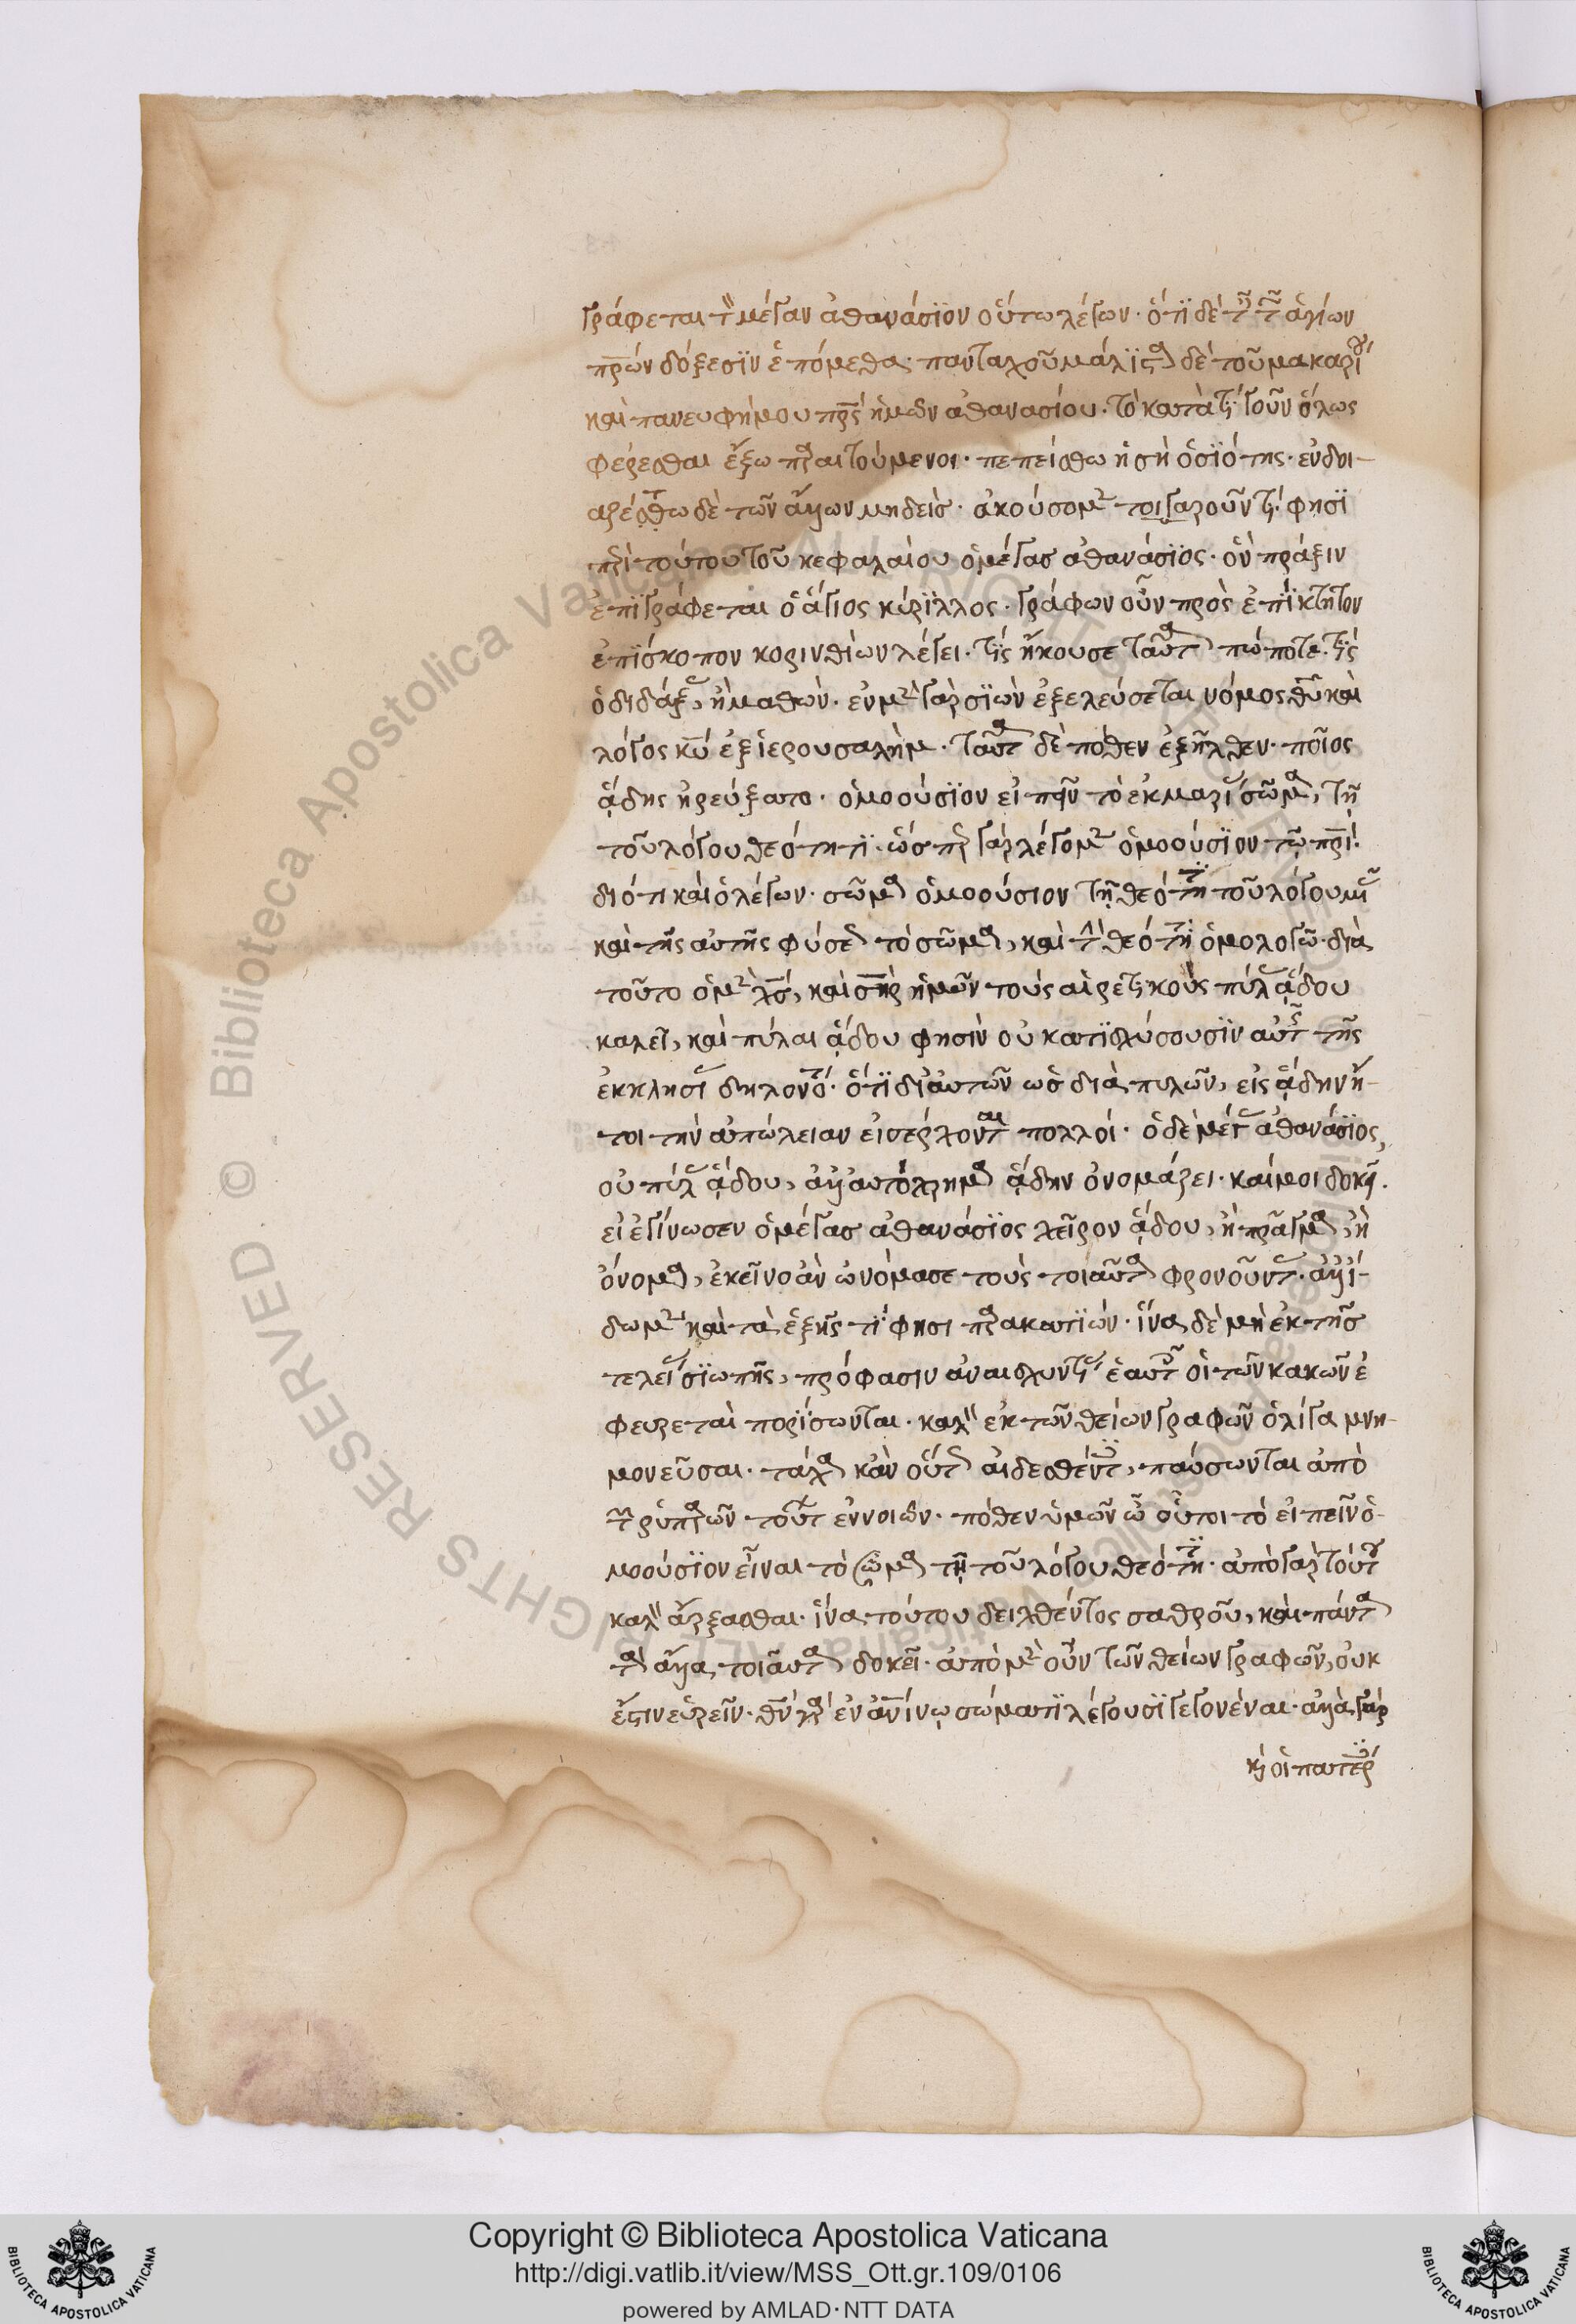 γράφεται τὸν μέγαν ἀθανάσϊον οὕτω λέγων· ὅτϊ δὲ ταῖς τῶν ἁγίων
πρων δόξεσϊν ἑπόμεθα· πανταχοῦ μάλϊστα δὲ τοῦ μακαρίου
καὶ πανευφήμου πρς ἡμῶν ἀθανασίου· τὸ κατὰ τι γοῦν ὅλως
φέρεσθαι ἔξω παραιτούμενοι· πεπείσθω ἡ σὴ ὁσϊότης· ἐνδοι-
αζέσθω δὲ τῶν ἄλλων μηδείς· ἀκούσομεν τοιγαροῦν τί φησϊ
περὶ τούτου τοῦ κεφαλαίου ὁ μέγας ἀθανάσϊος· ὃν πράξιν
ἐπϊγράφεται ὁ ἅγιος κύρϊλλος· γράφων οὖν πρὸς ἐπίκτητον
ἐπϊσκοπον κορινθίων λέγει· τίς ἤκουσε ταῦτα πώποτε· τίς
ὁ διδάξας, ἢ μαθών· ἐν μὲν γὰρ σϊὼν ἐξελεύσεται νόμος θυ καὶ
λόγος κυ ἐξ ἱερουσαλήμ· ταῦτα δὲ πόθεν ἐξῆλθεν· ποῖος
ᾅδης ἠρεύξατο· ὁμοούσϊον εἰπεῖν τὸ ἐκ μαρίας σῶμα, τῇ
τοῦ λόγου θεότητϊ· ὥσπερ γὰρ λέγομεν ὁμοούσϊον τῷ πρί·
διότι καὶ ὁ λέγων· σῶμα ὁμοούσιον τῇ θεότητι τοῦ λόγου μιᾶς
καὶ τῆς αὐτῆς φύσεως τὸ σῶμα, καὶ τὴν θεότητα ὁμολογῶ· διὰ
τοῦτο ὁ μὲν χς, καὶ σηρ ἡμῶν τοὺς αἱρετικοὺς πύλας ᾅδου
καλεῖ, καὶ πύλαι ᾅδου φησὶν οὐ κατϊσχύσουσϊν αὐτῆς τῆς
ἐκκλησίας δηλονότι· ὅτϊ δι' αὐτῶν ὡς διὰ πυλῶν, εἰς ᾅδην ἤ-
τοι τὴν ἀπώλειαν εἰσέρχονται πολλοί· ὁ δὲ μέγας ἀθανάσϊος,
οὐ πύλας ᾅδου, ἀλλ' αὐτόχρημα ᾅδην ὀνομάζει· καί μοι δοκεῖ·
εἰ ἐγίνωσκεν ὁ μέγας ἀθανάσϊος χεῖρον ᾅδου, ἢ πρᾶγμα, ἢ
ὄνομα, ἐκεῖνο ἂν ὠνόμασε τοὺς τοιαῦτα φρονοῦντας· ἀλλ' ἴ-
δωμεν καὶ τὰ ἑξῆς τί φησι παρακατϊών· ἵνα δὲ μὴ ἐκ τῆς
τελείας σϊωπῆς, πρόφασιν ἀναισχυντίας ἑαυτοῖς οἱ τῶν κακῶν ἐ
φευρεταὶ πορϊσωνται· καλὸν ἐκ τῶν θείων γραφῶν ὀλίγα μνη-
μονεῦσαι· τάχα κἂν οὕτως αἰδεσθέντες, παύσωνται ἀπὸ
τῶν ῥυπαρῶν τούτων ἐννοιῶν· πόθεν ὑμῶν ὦ οὗτοι τὸ εἰπεῖν ὁ-
μοούσϊον εἶναι τὸ σῶμα τῇ τοῦ λόγου θεότητι· ἀπὸ γὰρ τούτου
καλὸν ἄρξασθαι· ἵνα τούτου δειχθέντος σαθροῦ, καὶ πάντα
τὰ ἄλλα τοιαῦτα δοκεῖ· ἀπὸ μὲν οὖν τῶν θείων γραφῶν, οὐκ
ἔστιν εὑρεῖν· θν γὰρ ἐν ἀνίνῳ σώματϊ λέγουσϊ γεγονέναι· ἀλλὰ γὰρ
καὶ οἱ πατέρες